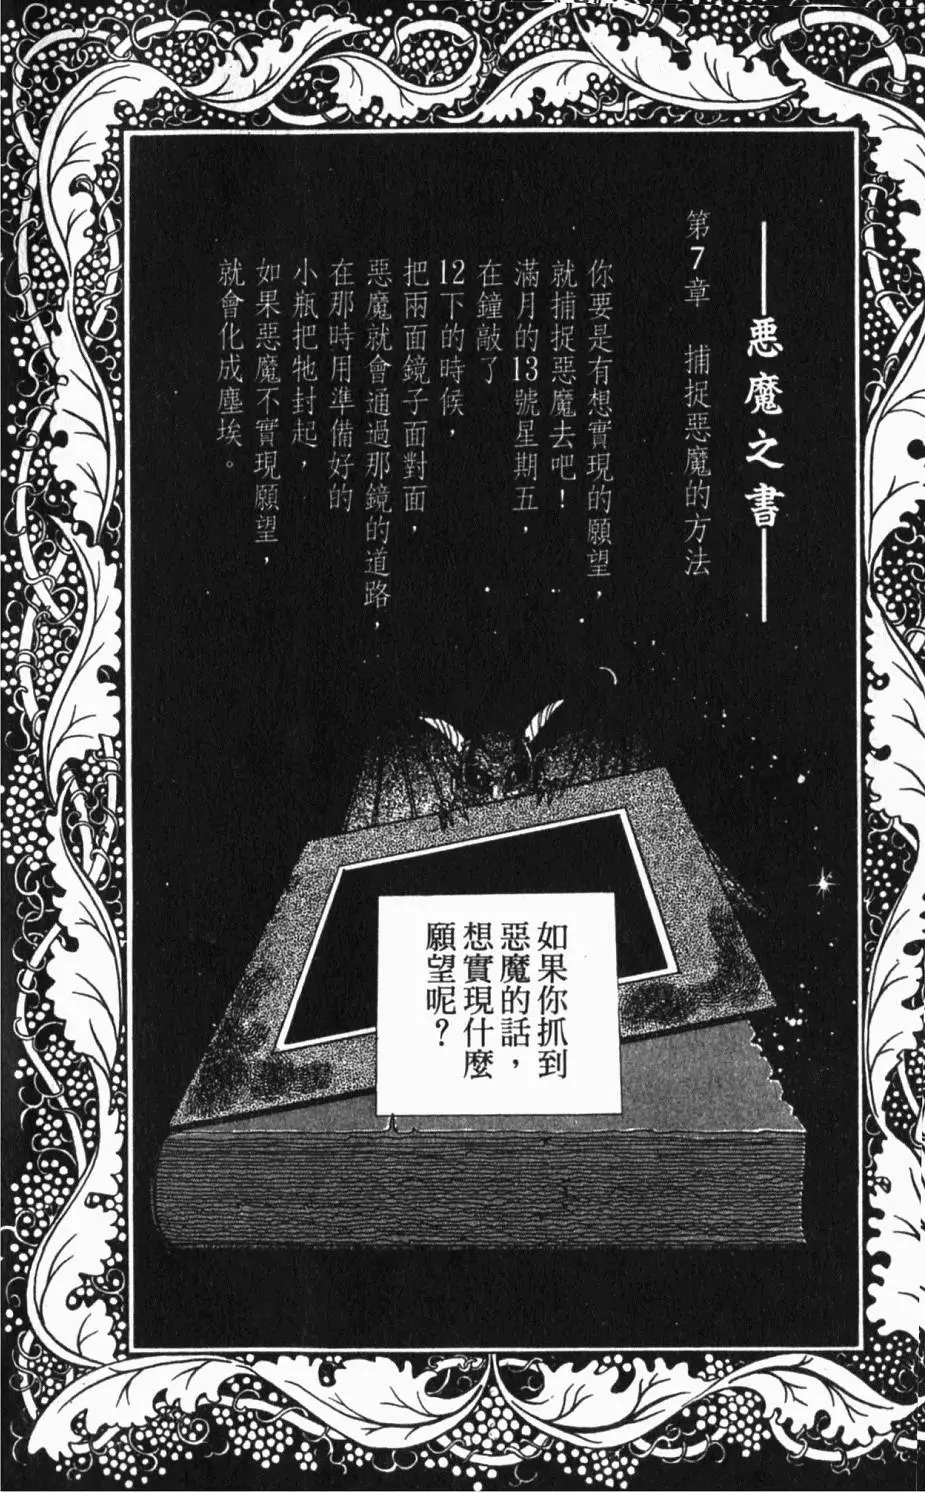 惡魔之書
第7章　捕捉惡魔的方法
你要是有想實現的願望，
就捕捉惡魔去吧！
滿月的13號星期五，
在鐘敲了
12下的時候，
把兩面鏡子面對面，
惡魔就會通過那鏡的道路，
在那時用準備好的
小瓶把牠封起，
如果惡魔不實現願望，
就會化成塵埃。
如果你抓到
惡魔的話，
想實現什麼
願望呢？